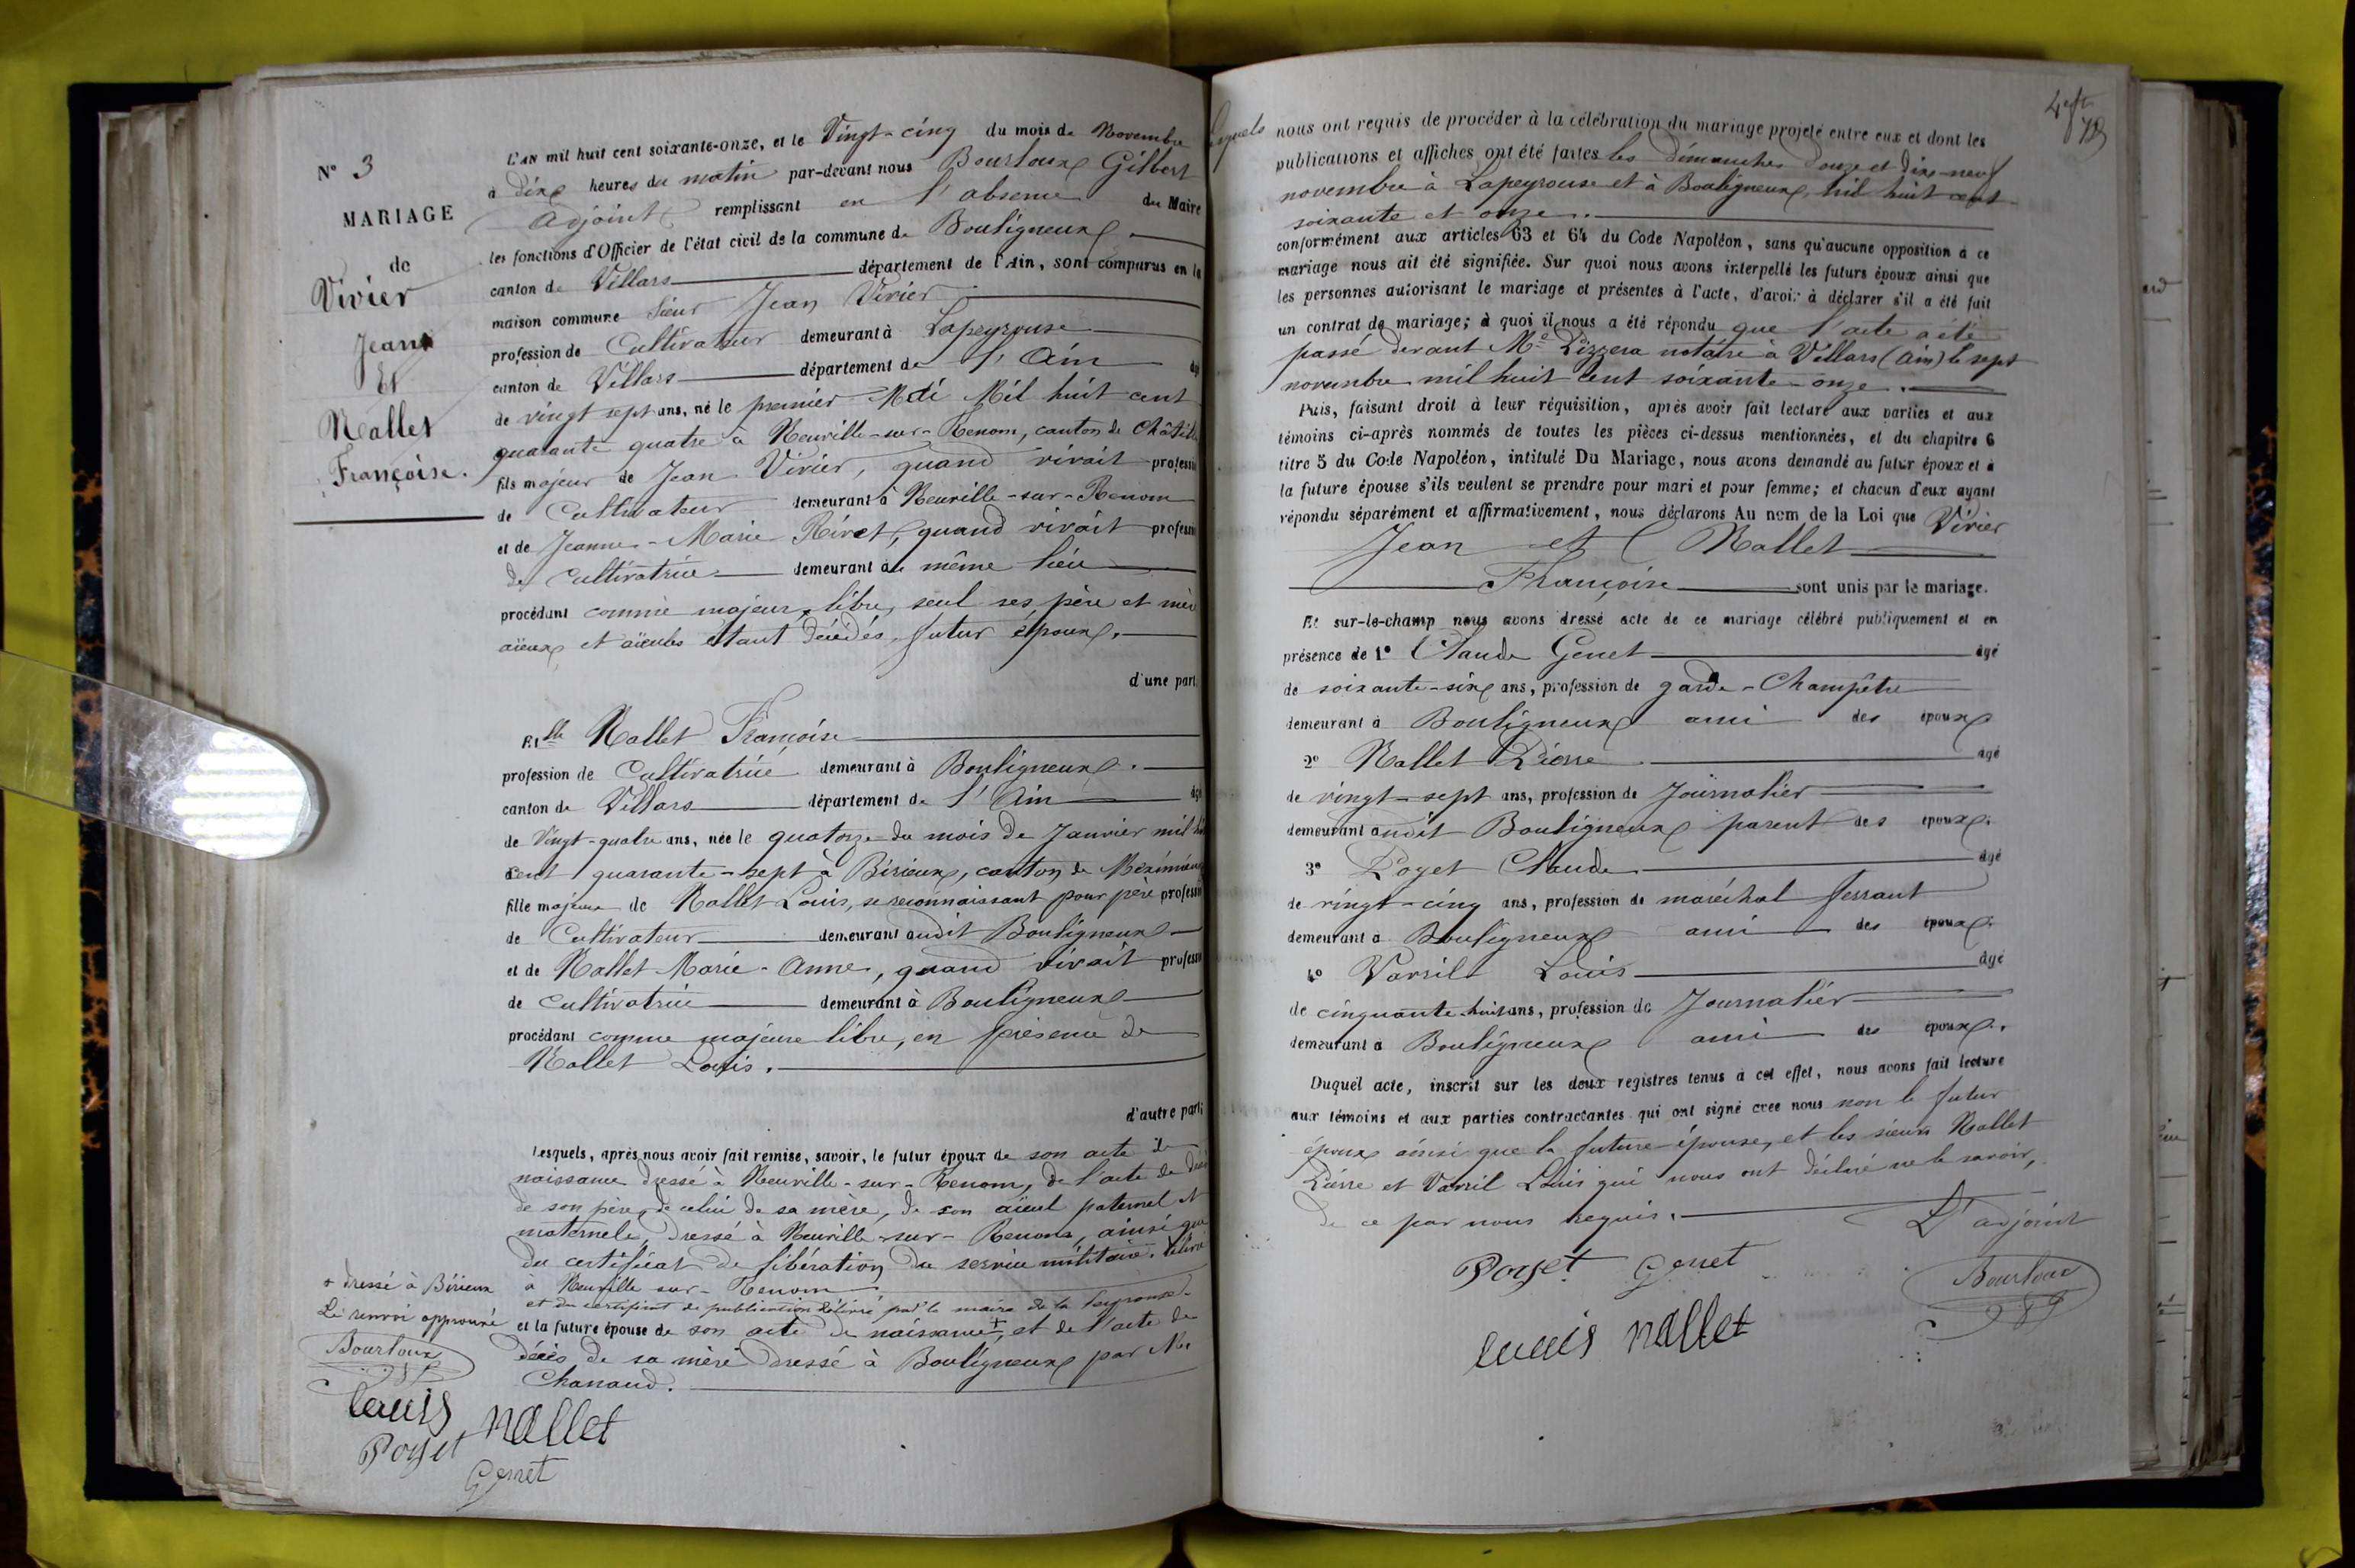 N° 3
MARIAGE
de
Vivier
Jean
Et
Nallet
Françoise.
L'AN mil huit cent soixante-onze, et le Vingt-cinq du mois de Novembre
à dix heures du matin par-devant nous Bourloux Gilbert
Adjoint remplissant en l'absence du Maire
les fonctions d'Officier de l'état civil de la commune de Bouligneux
canton de Villars département de l'Ain, sont comparus en la
maison commune Sieur Jean Vivier
profession de Cultivateur demeurant à Lapeyrouse
canton de Villars département de l'Ain âgé
de vingt sept ans, né le premier Mai Mil huit cent
quarante quatre à Neuville-sur-Renom, canton de Châtill
fils majeur de Jean Vivier, quand vivait professi
de Cultivateur demeurant à Neuville-sur-Renom
et de Jeanne-Marie Rivet, quand vivait professi
de Cultivatrice demeurant au même lieu
procédant comme majeur, libre, seul ses père et mère
aïeux et aïeules étant décédés, futur époux.
d'une part
Et lle Nallet Françoise
profession de Cultivatrice demeurant à Bouligneux.
canton de Villars département de l'Ain âgé
de Vingt-quatre ans, née le quatorze du mois de Janvier mil huit
cent quarante-sept à Birieux, canton de Meximieux
fille majeure de Nallet Louis, se reconnaissant pour père professi
de Cultivateur demeurant audit Bouligneux
et de Nallet Marie-Anne, quand vivait professi
de cultivatrice demeurant à Bouligneux
procédant comme majeure libre, en présence de
Nallet Louis.
d'autre part;
Lesquels, après nous avoir fait remise, savoir, le futur époux de son acte de
naissance dressé à Neuville-sur-Renom, de l'acte de décès
de son père, de celui de sa mère, de son aïeul paternel et
maternele, dressé à Neuville-sur-Renom, ainsi que
du certificat de libération du service militaire, délivré
à Neuville sur-Renom
et du certificat de publication délivré par le maire de la Peyrouse
et la future épouse de son acte de naissance +, et de l'acte de
décès de sa mère dressé à Bouligneux par Mr
Chanaud.
+ dressé à Birieux
Le renvoi approuvé
Bourloux
Louis nallet
Poyet
Genet
Lesquels nous ont requis de procéder à la célébration du mariage projeté entre eux et dont les
publications et affiches ont été faites les dimanches douze et dix-neuf
novembre à Lapeyrouse et à Bouligneux, mil huit cent
soixante et onze.
conformément aux articles 63 et 64 du Code Napoléon, sans qu'aucune opposition à ce
mariage nous ait été signifiée. Sur quoi nous avons interpellé les futurs époux ainsi que
les personnes autorisant le mariage et présentes à l'acte, d'avoir à déclarer s'il a été fait
un contrat de mariage; à quoi il nous a été répondu que l'acte a été
passé devant Me Pizzera notaire à Villars (Ain) le sept
novembre mil huit cent soixante-onze.
Puis, faisant droit à leur réquisition, après avoir fait lecture aux parties et aux
témoins ci-après nommés de toutes les pièces ci-dessus mentionnées, et du chapitre 6
titre 5 du Code Napoléon, intitulé Du Mariage, nous avons demandé au futur époux et à
la future épouse s'ils veulent se prendre pour mari et pour femme; et chacun d'eux ayant
répondu séparément et affirmativement, nous déclarons Au nom de la Loi que Vivier
Jean et Nallet
Françoise sont unis par le mariage.
Et sur-le-champ nous avons dressé acte de ce mariage célébré publiquement et en
présence de 1° Claude Genet âgé
de soixante-six ans, profession de garde-Champêtre
demeurant à Bouligneux ami des époux
2° Nallet Pierre âgé
de vingt-sept ans, profession de Journalier
demeurant audit Bouligneux parent des époux.
3° Poyet Claude âgé
de vingt-cinq ans, profession de maréchal ferrant
demeurant à Bouligneux ami des époux.
4° Varsil Louis âgé
de cinquante-huit ans, profession de Journalier
demeurant à Bouligneux ami des époux.
Duquel acte, inscrit sur les deux registres tenus à cet effet, nous avons fait lecture
aux témoins et aux parties contractantes qui ont signé avec nous non le futur
époux ainsi que la future épouse, et les sieurs Nallet
Pierre et Varsil Louis qui nous ont déclaré ne le savoir,
de ce par nous requis.
L'adjoint
Poyet Genet
Bourloux
Louis nallet